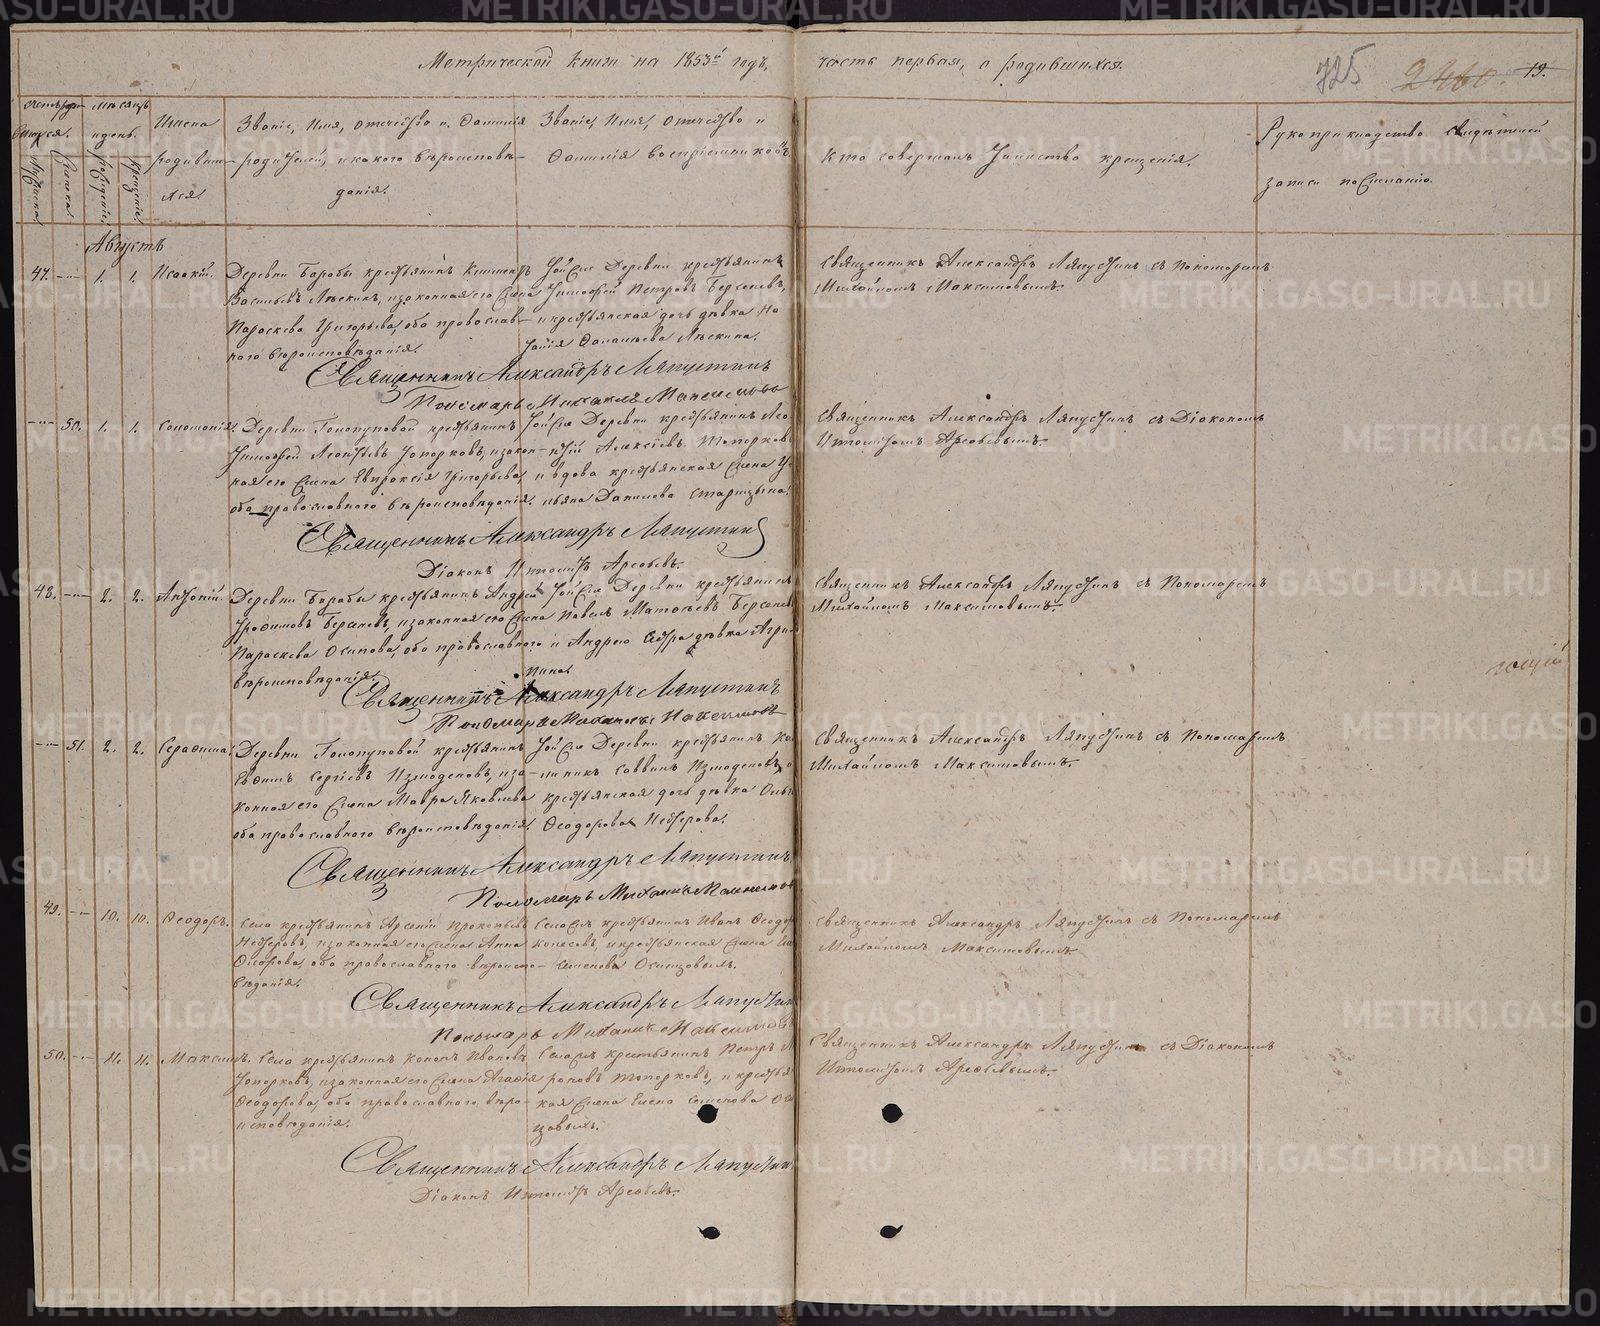 Метрической книги на 1853й годъ, часть первая, о родившихся.
725
2460.
19.
Счетъ родившихся.
Мужеска
Женска
Мѣсяцъ и день.
рожденіе.
крещенія.
Имена родившихся.
Званіе, Имя, отчество и Фамилія
родителей, и какого вѣроисповѣ-
данія.
Званіе, Имя, отчество и
Фамилія воспріемниковъ.
Кто совершалъ Таинство крещенія.
Рукоприкладство свидѣтелей
записи по желанію.
Августъ
47. 1. 1. Исаакій.
Деревни Барабы крестьянинъ
Васильевъ и законная его жена
Параскева Григорьева, оба православ-
наго вѣроисповѣданія.
Той же Деревни крестьянинъ
Тимофей Петровъ Берсеневъ,
и крестьянская дочь дѣвка На
Священникъ Александръ Ляпустинъ съ Пономаремъ
Михайломъ Максимовымъ.
Священникъ Александръ Ляпустинъ
Пономарь Михаилъ Максимовъ
50. 1. 1. Соломонія.
Деревни Голопуповой крестьянинъ
Тимофей Леонтьевъ Топорковъ, и закон-
ная его жена Евпраксія Григорьева,
оба православнаго вѣроисповѣданія.
Той же Деревни крестьянинъ
Алексѣевъ Топорковъ
и вдова крестьянская жена
Данилова
Священникъ Александръ Ляпустинъ съ Діакономъ
Ипполитомъ Арефьевымъ.
Священникъ Александръ Ляпустинъ
Діаконъ Ипполитъ Арефьевъ.
48. 2. 2. Антоній.
Деревни Барабы крестьянинъ Андрей
Трофимовъ Берсеневъ, и законная его жена
Параскева Осипова, оба православнаго
вѣроисповѣданія.
Той же Деревни крестьянинъ
Павелъ Матвѣевъ Берсеневъ
и Андрею сестра дѣвка Агри-
пина.
Священникъ Александръ Ляпустинъ съ Пономаремъ
Михайломъ Максимовымъ.
Священникъ Александръ Ляпустинъ
Пономарь Михаилъ Максимовъ
51. 2. 2. Серафима.
Деревни Голопуповой крестьянинъ
Евфимъ Сергѣевъ Измоденовъ, и за-
конная его жена Мавра Яковлева
оба православнаго вѣроисповѣданія.
Той же Деревни крестьянинъ Ка
линикъ Саввинъ Измоденовъ, и
крестьянская дочь дѣвка
Феодорова Нестерова.
Священникъ Александръ Ляпустинъ съ Пономаремъ
Михайломъ Максимовымъ.
Священникъ Александръ Ляпустинъ
Пономарь Михаилъ Максимовъ
49. 10. 10. Феодоръ.
Села крестьянинъ Арсеній Прокопьевъ
Нестеровъ, и законная его жена Анна
оба православнаго вѣроиспо-
вѣданія.
Села сего крестьянинъ Иванъ Феодо
и крестьянская жена
Семенова Осинцовыхъ.
Священникъ Александръ Ляпустинъ съ Пономаремъ
Михайломъ Максимовымъ.
Священникъ Александръ Ляпустинъ
Пономарь Михаилъ Максимовъ
50. 11. 11. Максимъ.
Села крестьянинъ Кононъ Ивановъ
Топорковъ, и законная его жена Агафія
Феодорова, оба православнаго вѣро-
исповѣданія.
Села сего крестьянинъ Петръ
Топорковъ, и крестьян
кая жена Елена Семенова Осин
цовыхъ.
Священникъ Александръ Ляпустинъ съ Діакономъ
Ипполитомъ Арефьевымъ.
Священникъ Александръ Ляпустинъ
Діаконъ Ипполитъ Арефьевъ.
METRIKI.GASO-URAL.RU